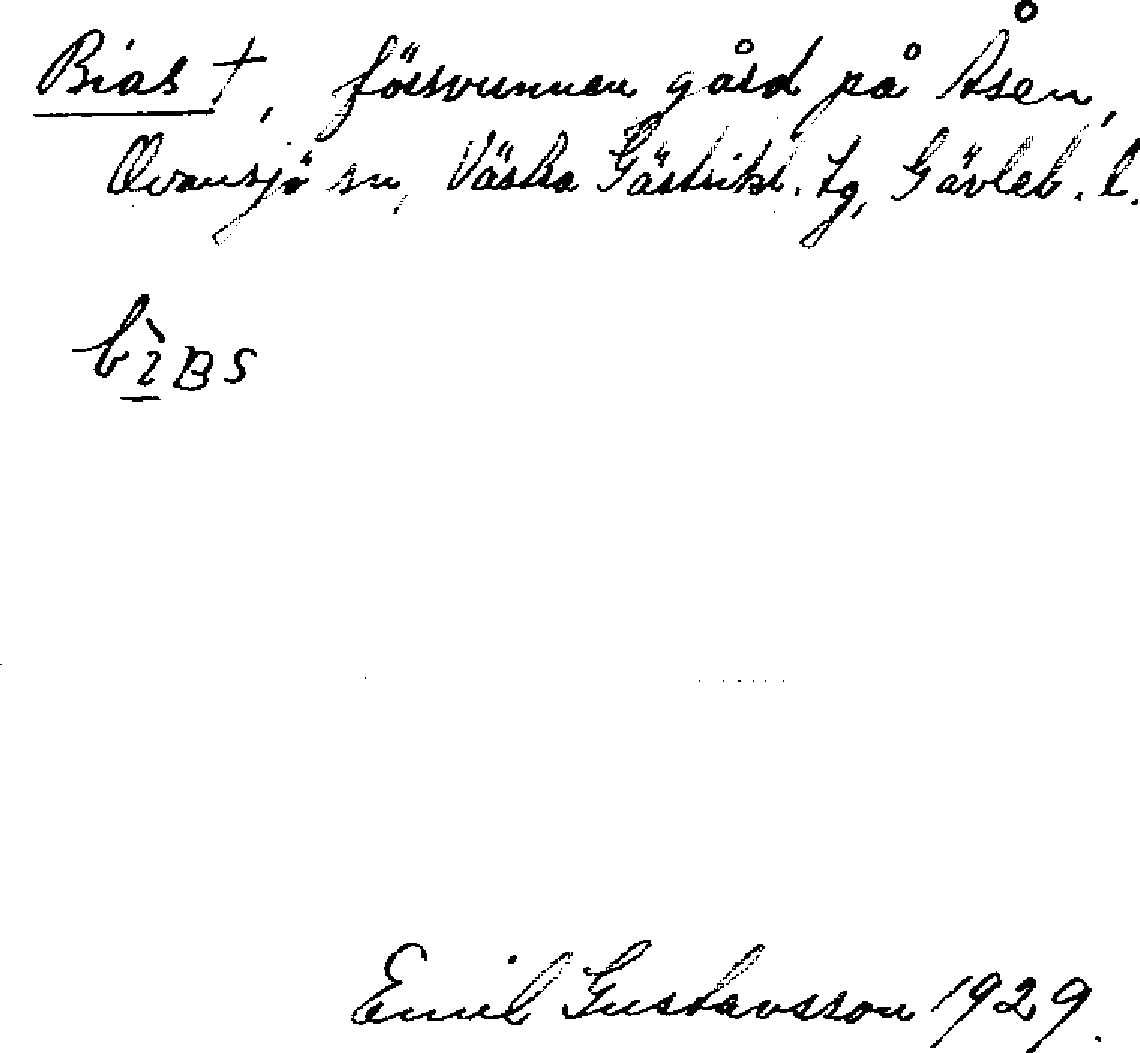 Bias †, försvunnen gård på Åsen,
Ovansjö sn, Västra Gästrikl. tg, Gävleb. l.
Emil Gustavsson 1929.